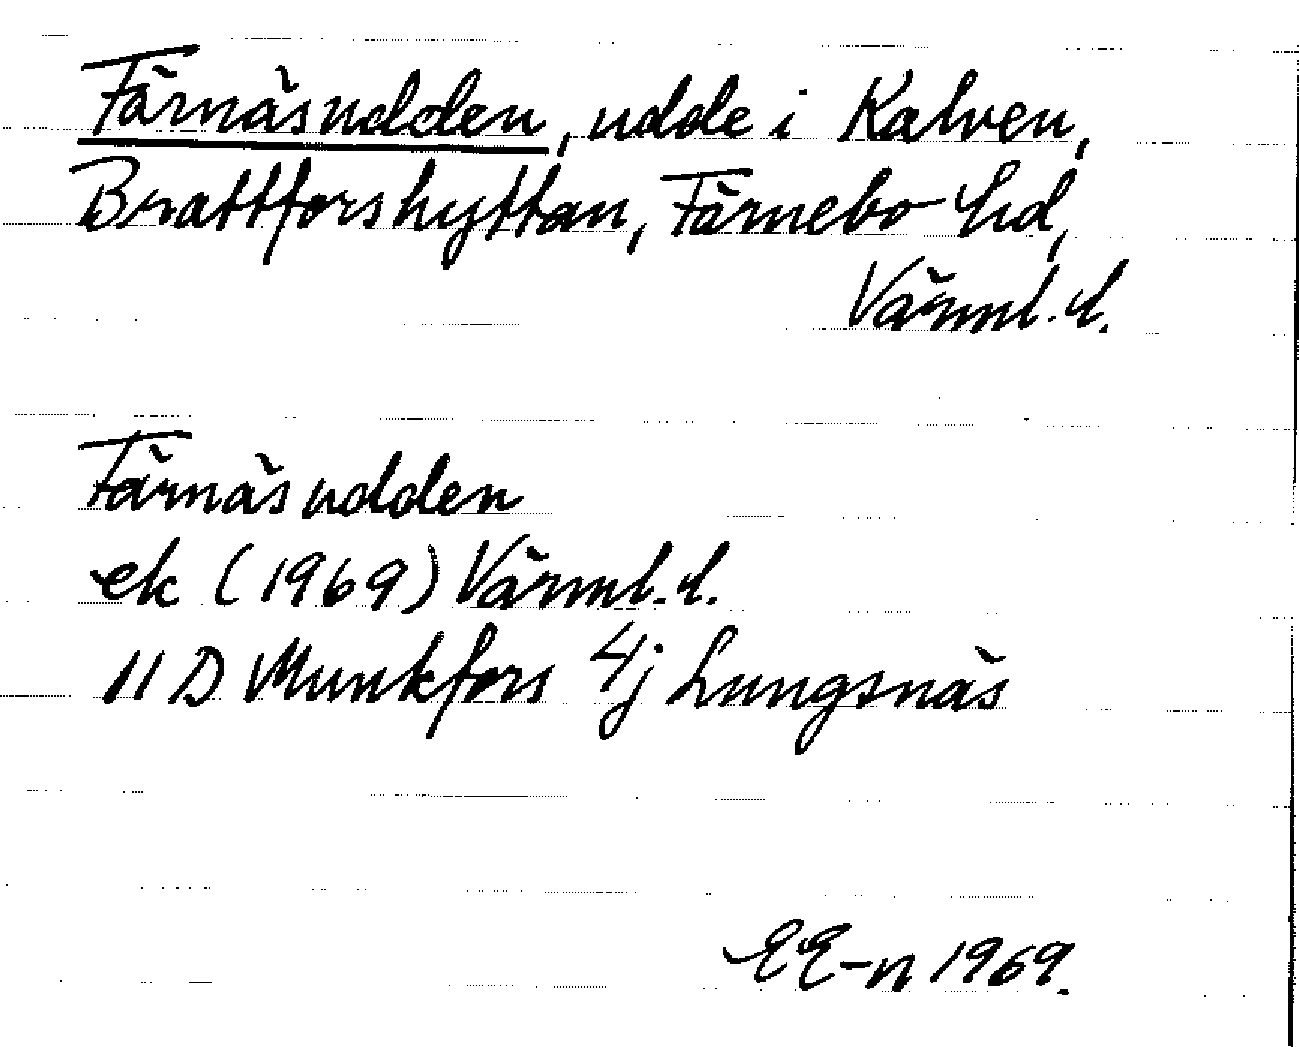 Färnäsudden, udde i Kalven,
Brattforshyttan, Färnebo hd,
Värml. l.
Färnäsudden
ek (1969) Värml. l.
11 D Munkfors 4j Lungsnäs
EE-n 1969.